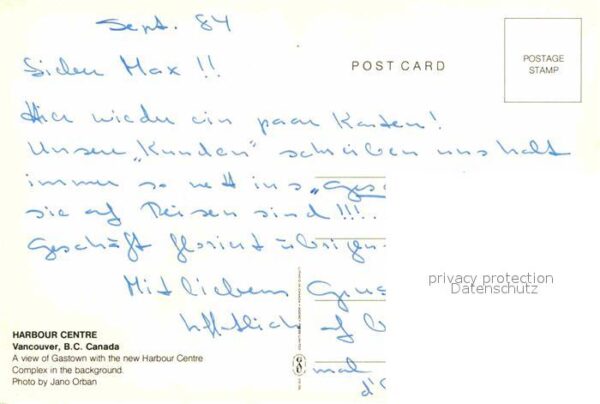 Sept. 84
Lieber Max !!
POST CARD
POSTAGE
STAMP
Hier wieder ein paar Karten!
Unsere „Kunden" schreiben uns halt
immer so nett ins „Ges
sie auf Reisen sind !!!.
Geschäft floriert übrigen
privacy protection
Datenschutz
Mit liebem Grus
hoffentlich auf b
mal
d'
HARBOUR CENTRE
Vancouver, B.C. Canada
A view of Gastown with the new Harbour Centre
Complex in the background.
Photo by Jano Orban